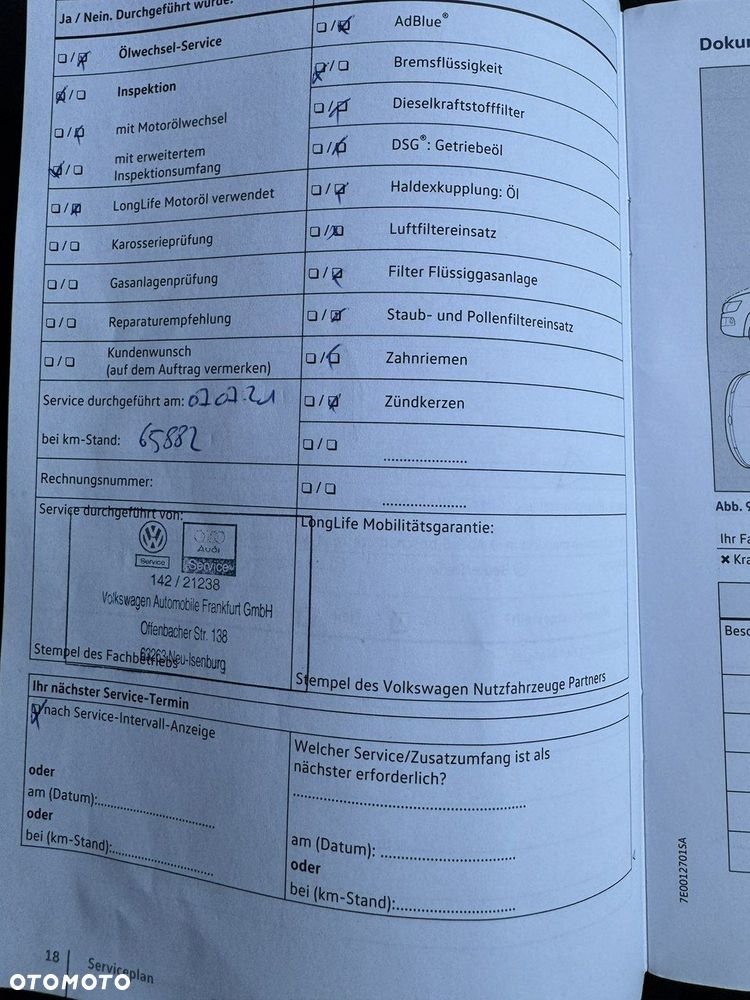 Ja / Nein. Durchgeführt wurde:
Ölwechsel-Service
Inspektion
mit Motorölwechsel
mit erweitertem
Inspektionsumfang
LongLife Motoröl verwendet
Karosserieprüfung
Gasanlagenprüfung
Reparaturempfehlung
Kundenwunsch
(auf dem Auftrag vermerken)
Service durchgeführt am: 07.07.21
bei km-Stand: 65882
Rechnungsnummer:
Service durchgeführt von:
Service
Audi
Service
142 / 21238
Volkswagen Automobile Frankfurt GmbH
Offenbacher Str. 138
63263 Neu-Isenburg
Stempel des Fachbetriebs
AdBlue®
Bremsflüssigkeit
Dieselkraftstofffilter
DSG®: Getriebeöl
Haldexkupplung: Öl
Luftfiltereinsatz
Filter Flüssiggasanlage
Staub- und Pollenfiltereinsatz
Zahnriemen
Zündkerzen
LongLife Mobilitätsgarantie:
Stempel des Volkswagen Nutzfahrzeuge Partners
Ihr nächster Service-Termin
nach Service-Intervall-Anzeige
oder
am (Datum):
oder
bei (km-Stand):
Welcher Service/Zusatzumfang ist als
nächster erforderlich?
am (Datum):
oder
bei (km-Stand):
18 Serviceplan
Dokum
Abb. 9
Ihr Fa
Kra
Besc
7E0012701SA
OTOMOTO